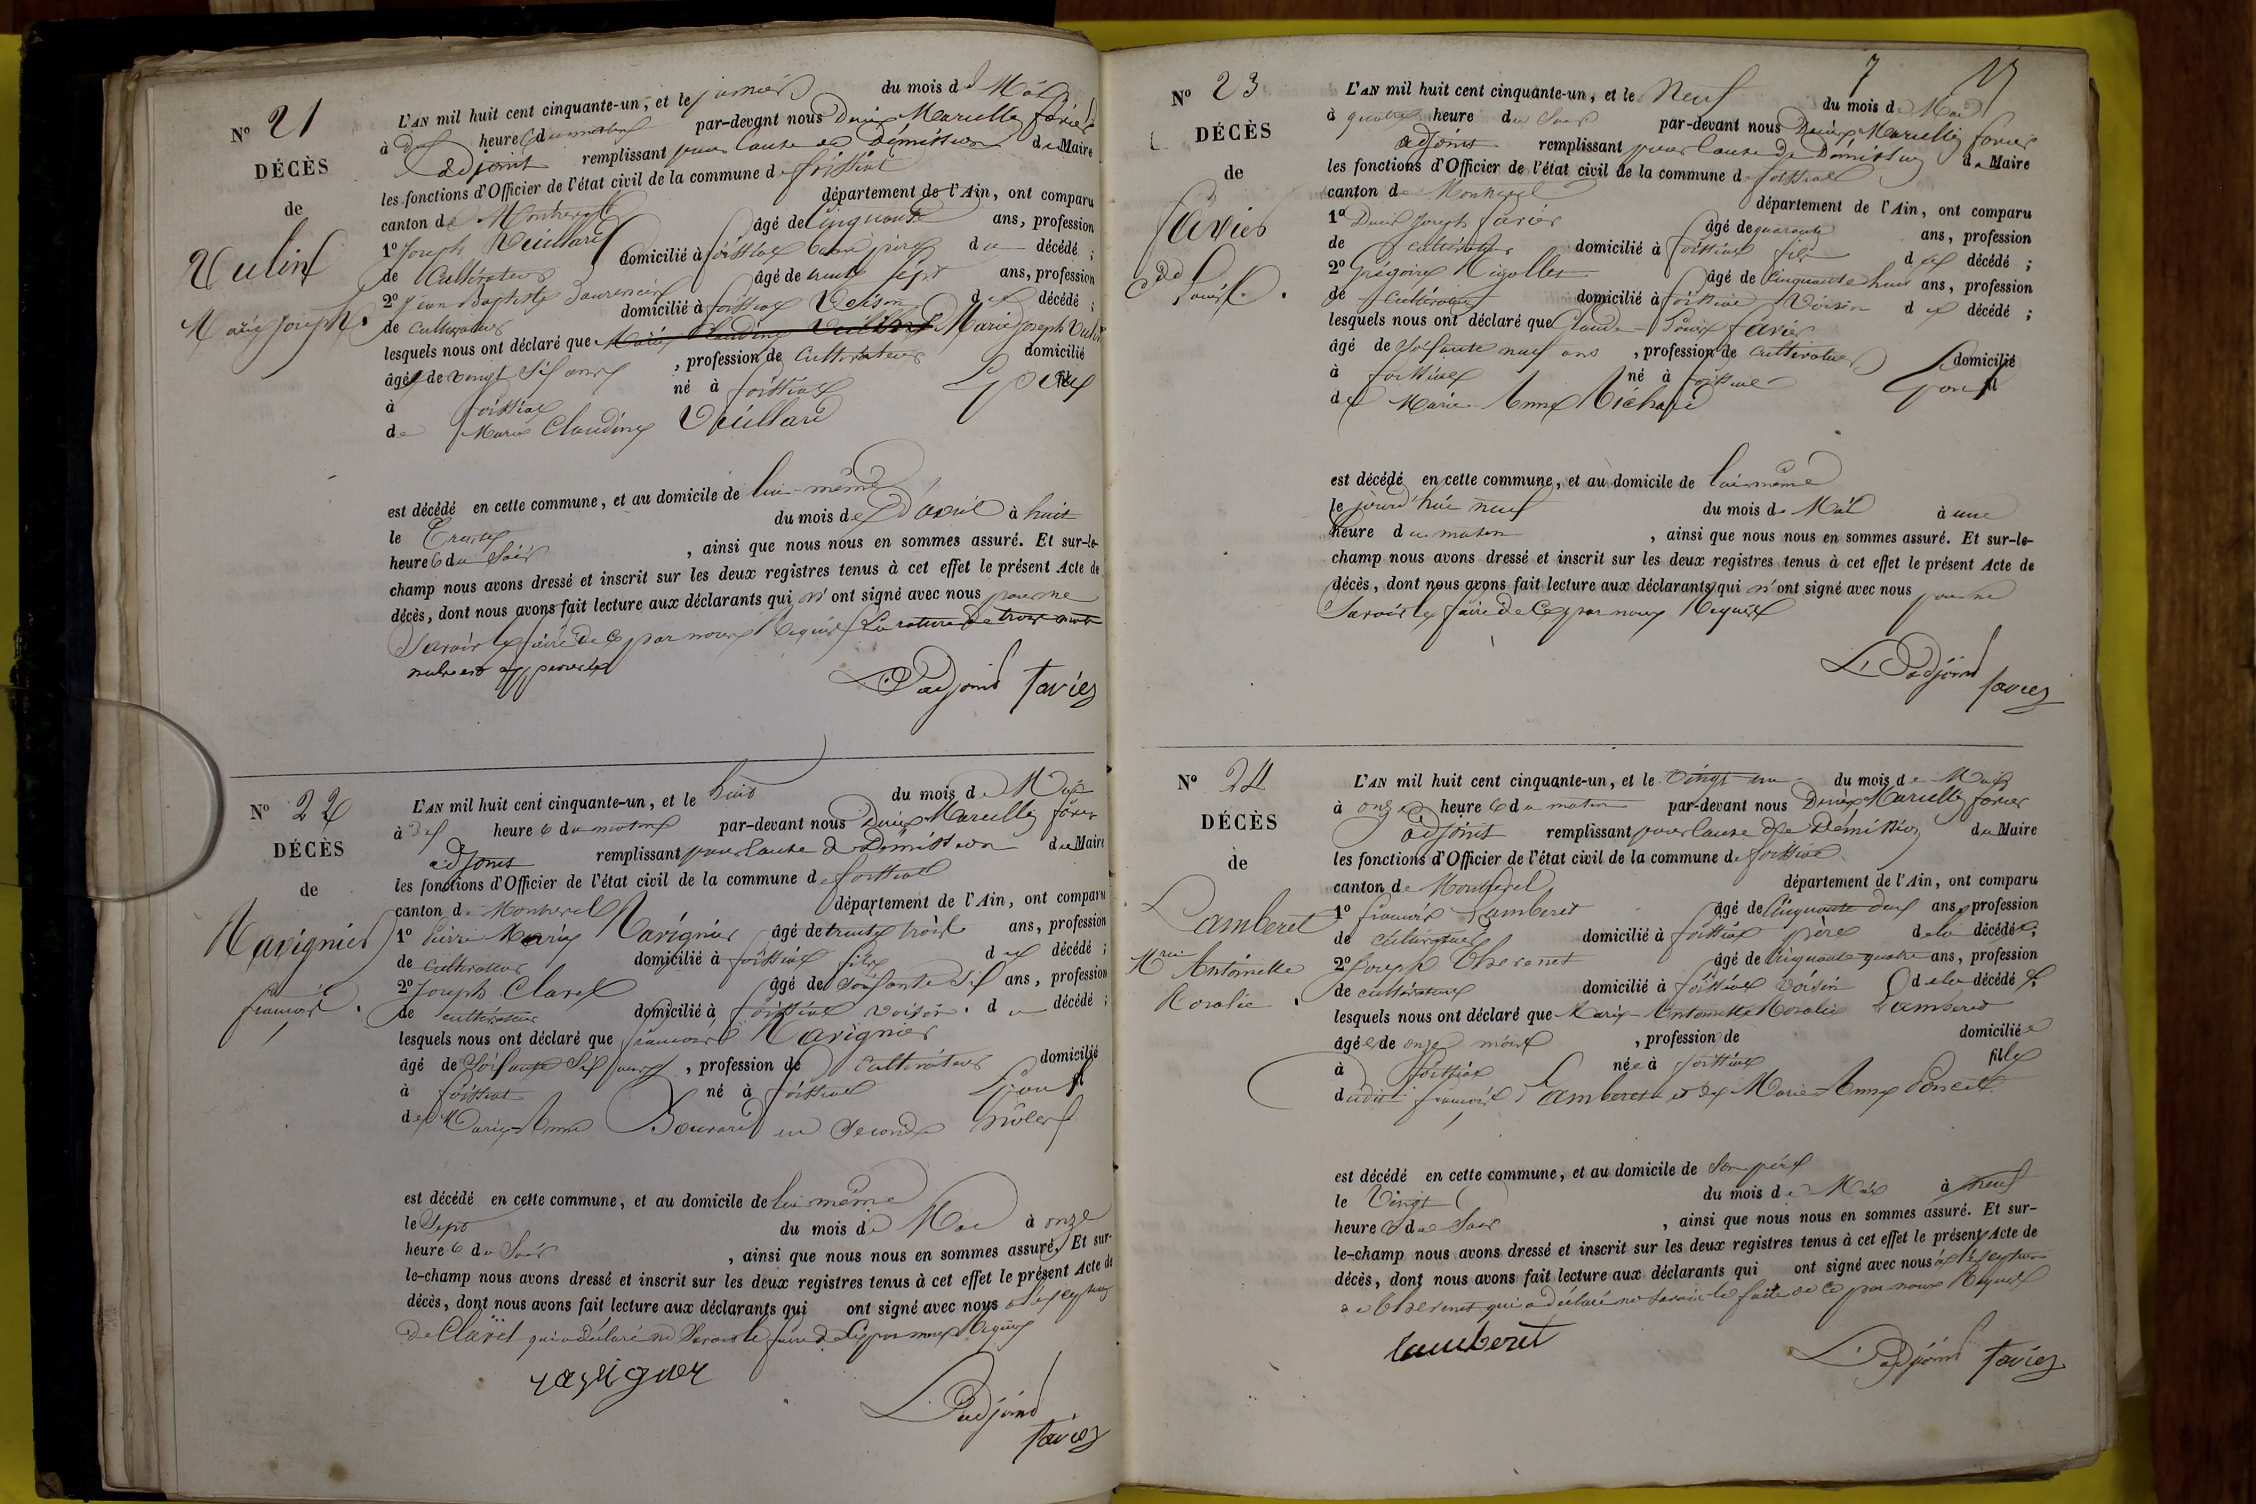 N° 21
DÉCÈS
de
Vulin
Marie Joseph.
L'AN mil huit cent cinquante-un, et le premier du mois de Mai
à dix heures du matin par-devant nous Denis Marcellin favier
adjoint remplissant pour cause de Démission du Maire
les fonctions d'Officier de l'état civil de la commune de foissiat
canton de Montrevel département de l'Ain, ont comparu
1° Joseph Veuillard âgé de cinquante ans, profession
de Cultivateur domicilié à foissiat beau père du décédé ;
2° Jean Baptiste Laurencin âgé de trente sept ans, profession
de cultivateur domicilié à foissiat Voisin du décédé ;
lesquels nous ont déclaré que Marie Joseph Vulin
âgé de vingt six ans , profession de Cultivateur domicilié
à foissiat né à foissiat Epoux
de Marie Claudine Veuillard
est décédé en cette commune, et au domicile de lui-même
le Trente du mois de d'avril à huit
heures du Soir , ainsi que nous nous en sommes assuré. Et sur-le-
champ nous avons dressé et inscrit sur les deux registres tenus à cet effet le présent Acte de
décès, dont nous avons fait lecture aux déclarants qui n'ont signé avec nous pour ne
Savoir le faire de ce par nous Requis La rature de trois mots
nuls est approuvée
L'adjoint favier
N° 22
DÉCÈS
de
Ravignier
françois.
L'AN mil huit cent cinquante-un, et le huit du mois de Mai
à dix heures du matin par-devant nous Denis Marcellin favier
adjoint remplissant pour cause de Démission du Maire
les fonctions d'Officier de l'état civil de la commune de foissiat
canton de Montrevel département de l'Ain, ont comparu
1° Pierre Marie Ravignier âgé de trente trois ans, profession
de cultivateur domicilié à foissiat fils du décédé ;
2° Joseph Claret âgé de soixante six ans, profession
de cultivateur domicilié à foissiat voisin. du décédé ;
lesquels nous ont déclaré que françois Ravignier
âgé de Soixante Six ans , profession de cultivateur domicilié
à foissiat né à foissiat Epoux
de Marie Anne Bouvard en Seconde
est décédé en cette commune, et au domicile de lui même
le Sept du mois de Mai à onze
heures du Soir , ainsi que nous nous en sommes assuré. Et sur-
le-champ nous avons dressé et inscrit sur les deux registres tenus à cet effet le présent Acte de
décès, dont nous avons fait lecture aux déclarants qui ont signé avec nous à l'exception
de Claret qui a déclaré ne Savoir le faire de ce par nous Requis
ravignier
L'adjoint
favier
7
N° 23
DÉCÈS
de
favier
Cde Louis.
L'AN mil huit cent cinquante-un, et le Neuf du mois de Mai
à quatre heure du Soir par-devant nous Denis Marcellin favier
adjoint remplissant pour cause de Démission du Maire
les fonctions d'Officier de l'état civil de la commune de foissiat
canton de Montrevel département de l'Ain, ont comparu
1° Denis Joseph favier âgé de quarante ans, profession
de cultivateur domicilié à foissiat fils du décédé ;
2° Grégoire Rigollet âgé de Cinquante huit ans, profession
de cultivateur domicilié à foissiat Voisin du décédé ;
lesquels nous ont déclaré que Claude Louis favier
âgé de Soixante neuf ans , profession de cultivateur domicilié
à foissiat né à foissiat Epoux
de Marie Anne Michard
est décédé en cette commune, et au domicile de lui même
le jourd'hui neuf du mois de Mai à une
heure du matin , ainsi que nous nous en sommes assuré. Et sur-le-
champ nous avons dressé et inscrit sur les deux registres tenus à cet effet le présent Acte de
décès, dont nous avons fait lecture aux déclarants qui n'ont signé avec nous pour ne
Savoir le faire de ce par nous Requis
L'adjoint favier
N° 24
DÉCÈS
de
Lamberet
Mrie Antoinette
Rosalie.
L'AN mil huit cent cinquante-un, et le vingt un du mois de Mai
à onze heures du matin par-devant nous Denis Marcellin favier
adjoint remplissant pour cause de Démission du Maire
les fonctions d'Officier de l'état civil de la commune de foissiat
canton de Montrevel département de l'Ain, ont comparu
1° françois Lamberet âgé de Cinquante deux ans, profession
de cultivateur domicilié à foissiat père de la décédée ;
2° Joseph Thevenet âgé de Cinquante quatre ans, profession
de cultivateur domicilié à foissiat voisin de la décédée ;
lesquels nous ont déclaré que Marie Antoinette Rosalie Lamberet
âgée de onze mois , profession de domiciliée
à foissiat née à foissiat fille
dudit françois Lamberet et de Marie Anne Poncet
est décédé en cette commune, et au domicile de Son père
le Vingt du mois de Mai à neuf
heures du Soir , ainsi que nous nous en sommes assuré. Et sur-
le-champ nous avons dressé et inscrit sur les deux registres tenus à cet effet le présent Acte de
décès, dont nous avons fait lecture aux déclarants qui ont signé avec nous à l'exception
de Thevenet qui a déclaré ne savoir le faire de ce par nous Requis
lamberet
L'adjoint favier